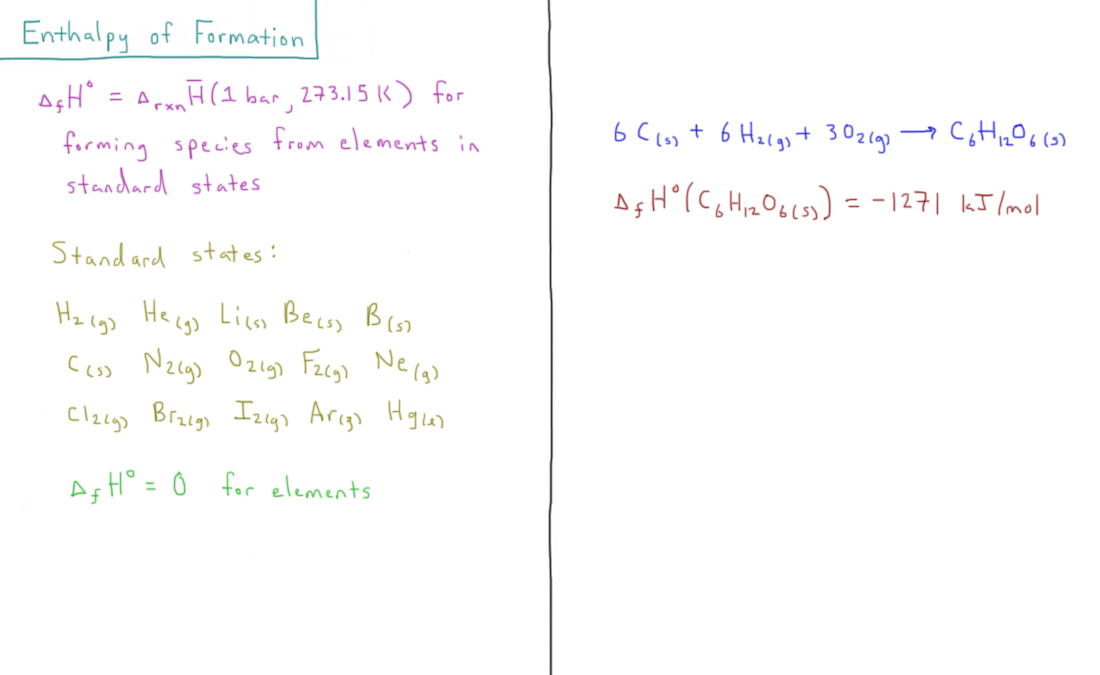 Enthalpy of Formation
Δ_fH° = Δ_rxnH̅(1 bar, 273.15 K) for
forming species from elements in
standard states
Standard states:
H₂(g) He(g) Li(s) Be(s) B(s)
C(s) N₂(g) O₂(g) F₂(g) Ne(g)
Cl₂(g) Br₂(g) I₂(g) Ar(g) Hg(ℓ)
Δ_fH° = 0 for elements
6 C(s) + 6 H₂(g) + 3 O₂(g) → C₆H₁₂O₆(s)
Δ_fH°(C₆H₁₂O₆(s)) = -1271 kJ/mol